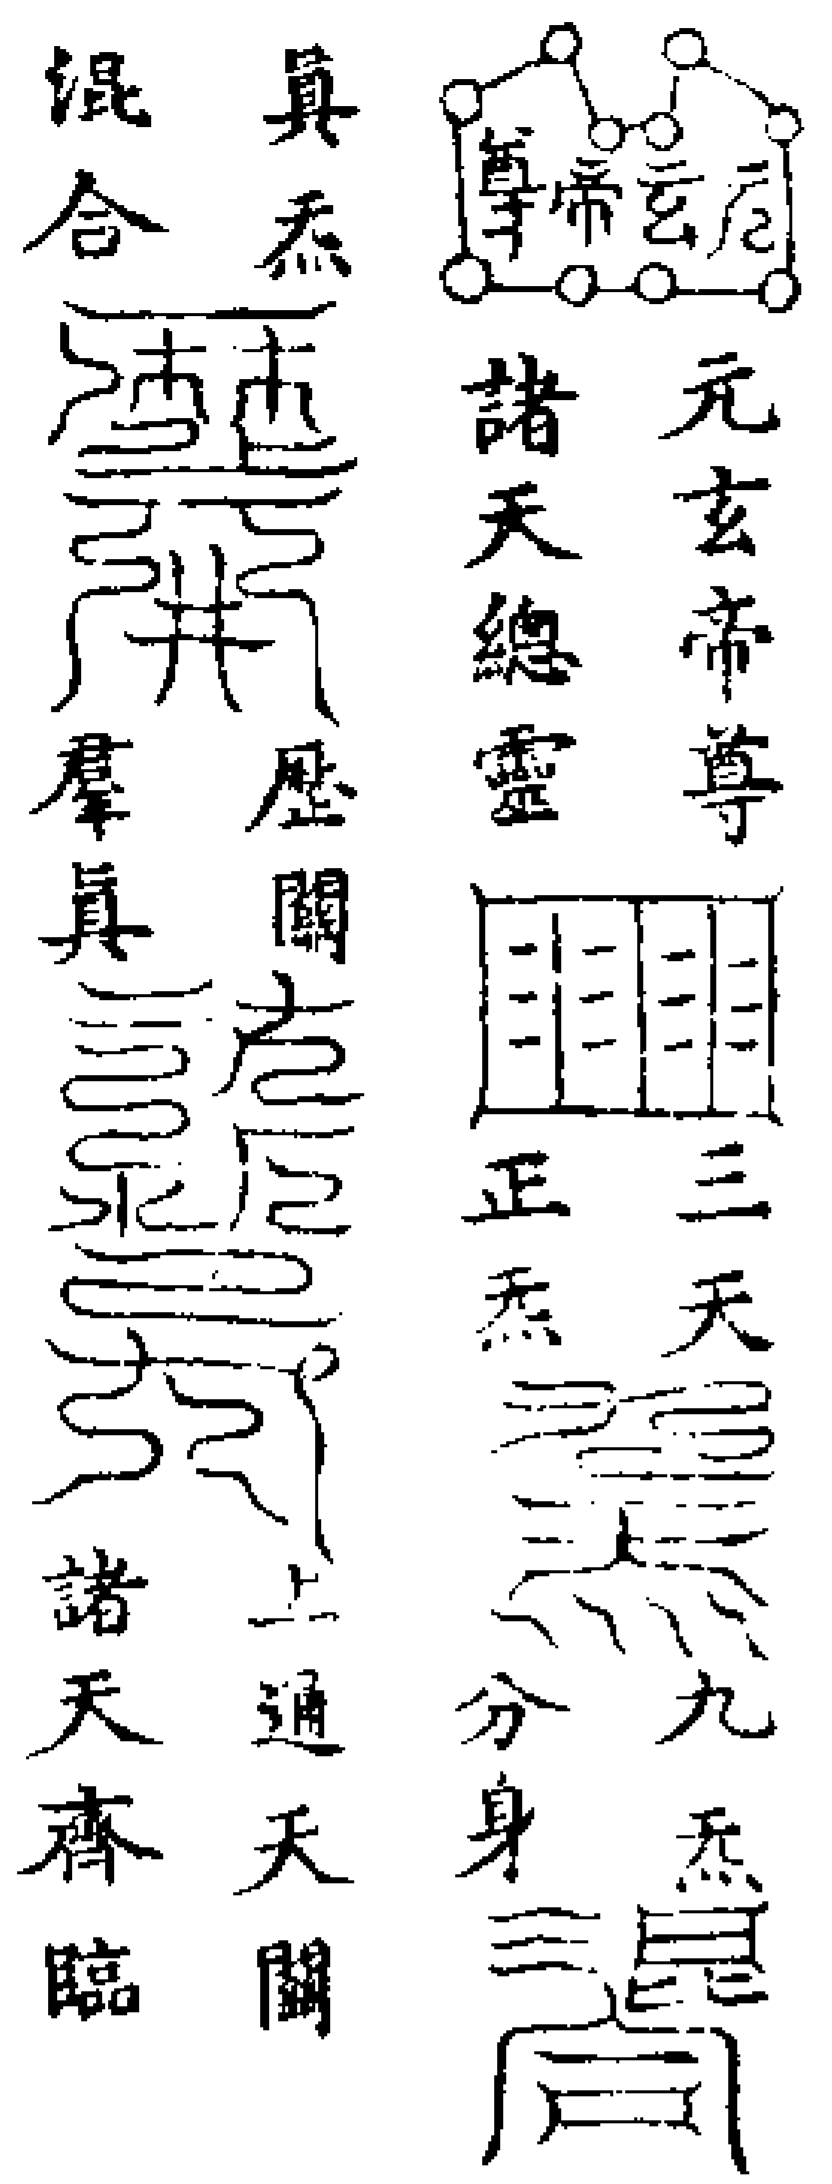 元玄帝尊
元玄帝尊
諸天總靈
三天
正炁
九炁
分身
真炁
混合
關
羣真
上通天關
諸天齊臨